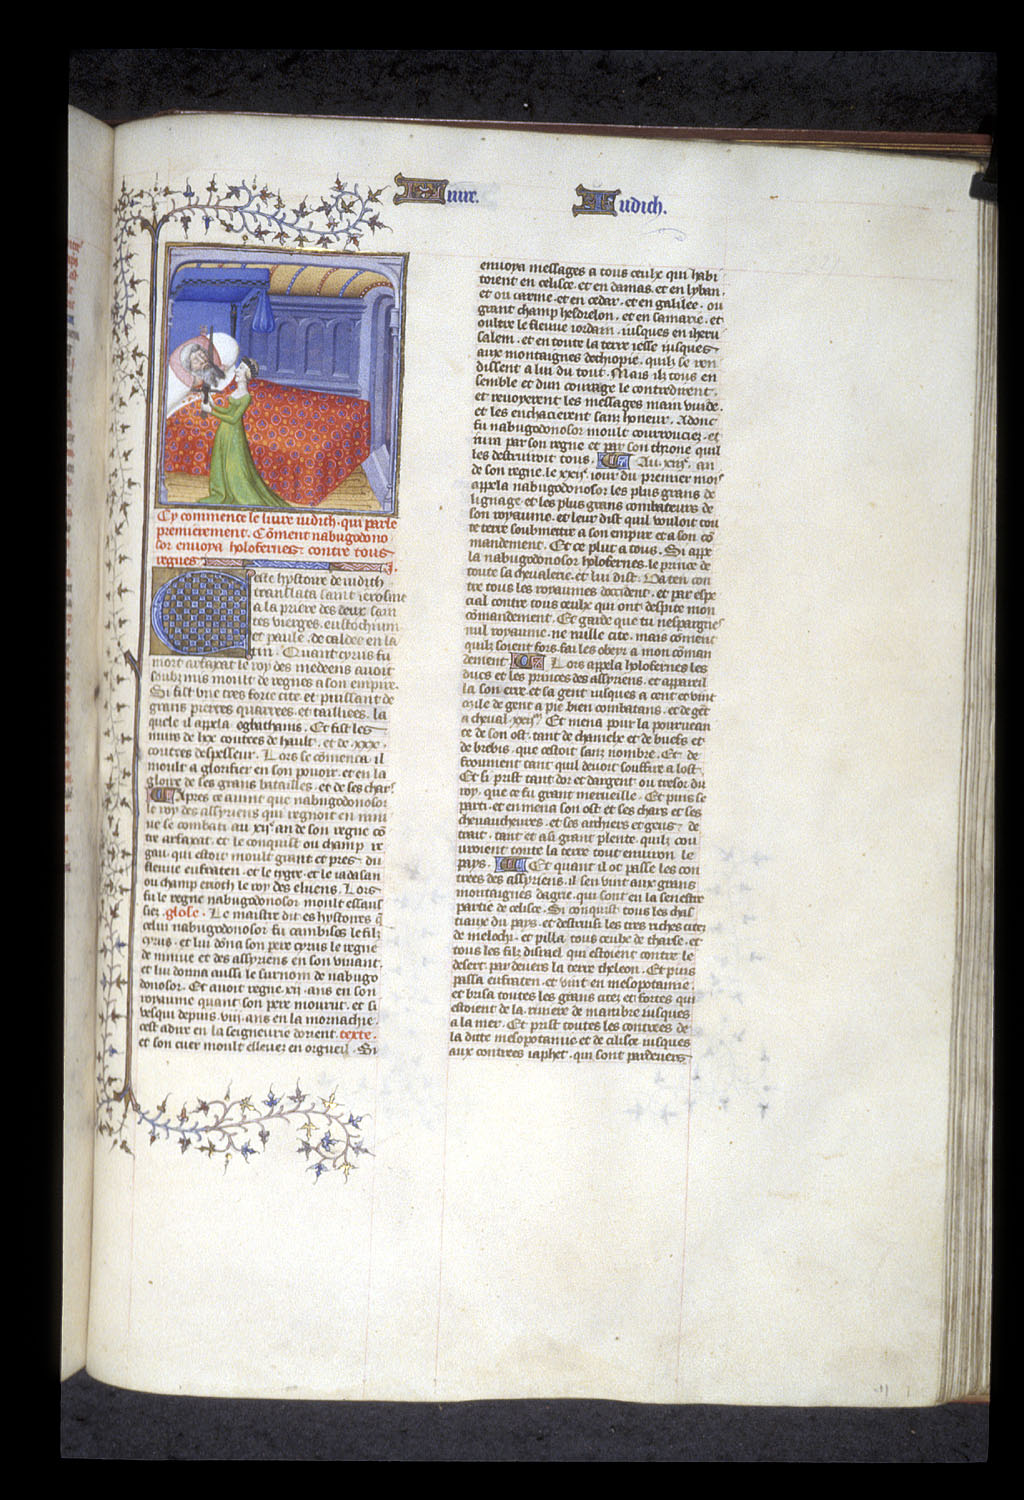 Liure.
Iudich.
Cy commence le liure iudith. qui parle
premierement. Cōment nabugodono
sor enuoya holofernes. contre tous
regnes. j.
Ceste hystoire de iudith
translata saint ierosme
a la priere des deux sain
tes vierges. eustochium
et paule. de caldee en la
tin. Quant cyrus fu
mort arfaxat le roy des medeens auoit
soubzmis moult de regnes a son empire.
Si fist vne tres forte cite et puissant de
grans pierres quarrees. et taillies. la
quele il appela egbathanis. Et fist les
murs de lxx coutees de hault. et de .xxx.
coutees despesseur. Lors se cōmenca il
moult a glorifier en son pouoir. et en la
gloire de ses grans batailles. et de ses chars
Apres ce auint que nabugodonosor
le roy des assyriens qui regnoit en nini
ue se combati au xijᵉ an de son regne cō
tre arfaxat. et le conquist ou champ re
gau. qui estoit moult grant et pres du
fleuue eufraten. et le tygre. et le iadasan
ou champ enoch le roy des eliciens. Lors
fu le regne nabugodonosor moult essauf
siez. glose. Le maistre dit es hystoires q̄
celui nabugodonosor fu cambises le filz
cyrus. et lui dōna son pere cyrus le regne
de niniue et des assyriens en son viuant.
et lui donna aussi le surnom de nabugo
donosor. Et auoit regne .xij. ans en son
royaume quant son pere mourut. et si
vesqui depuis. viij. ans en la monarchie.
cest adire en la seigneurie dorient. texte.
et son cuer moult esleuez en orgueil. Si
enuoya messages a tous ceulx qui habi
toient en celisce. et en damas. et en lyban.
et ou carme. et en cedar. et en galilee. ou
grant champ hesdrelon. et en samarie. et
oultre le fleuue iordain. iusques en iheru
salem. et en toute la terre iesse iusques
aux montaignes dethiopie. quilz se ren
dissent a lui du tout. Mais ilz tous en
semble et dun courage le contredirent.
et renuoyerent les messages main vuide.
et les enchacierent sanz honeur. Adonc
fu nabugodonosor moult courrouciez. et
iura par son regne et par son throne quil
les destruiroit tous. Au .xiijᵉ. an
de son regne. le .xxijᵉ. iour du premier mois
appela nabugodonosor les plus grans de
lignage. et les plus grans combateurs de
son royaume. et leur dist quil vouloit tou
te terre soubmettre a son empire et a son cō
mandement. Et ce plut a tous. Si appe
la nabugodonosor holofernes. le prince de
toute sa cheualerie. et lui dist. Va ten con
tre tous les royaumes doccident. et par espe
cial contre tous ceulx qui ont despite mon
cōmandement. Et garde que tu nespargnes
nul royaume. ne nulle cite. mais cōment
quilz soient fors. fai les obeyr a mon cōman
dement. Lors appela holofernes les
ducs et les princes des assyriens. et appareil
la son erre. et sa gent iusques a cent et vint
mile de gent a pie bien combatans. et de gēt
a cheual .xxijᵐ. Et mena pour la pouruean
ce de son ost. tant de chamelx et de buefs et
de brebis. que cestoit sanz nombre. Et de
froument tant quil deuoit souffire a lost.
Et si prist tant dor et dargent ou tresor du
roy. que ce fu grant merueille. Et puis se
parti. et en mena son ost et ses chars et ses
cheuaucheures. et ses archiers et gens de
trait. tant et a si grant plente. quilz cou
uroient toute la terre tout enuiron le
pays. Et quant il ot passe les con
trees des assyriens. il sen vint aux grans
montaignes dagie. qui sont en la senestre
partie de celisce. Si conquist tous les chas
tiaux du pays. et destruist les tres riches citez
de melochi. et pilla tous ceulx de tharse. et
tous les filz disrael qui estoient contre le
desert par deuers la terre theleon. Et puis
passa eufraten. et vint en mesopotamie.
et brisa toutes les grans citez et fortes qui
estoient de la riuiere de mambre iusques
a la mer. Et prist toutes les contrees de
la ditte mesopotamie et de celisce iusques
aux contrees iaphet. qui sont pardeuers